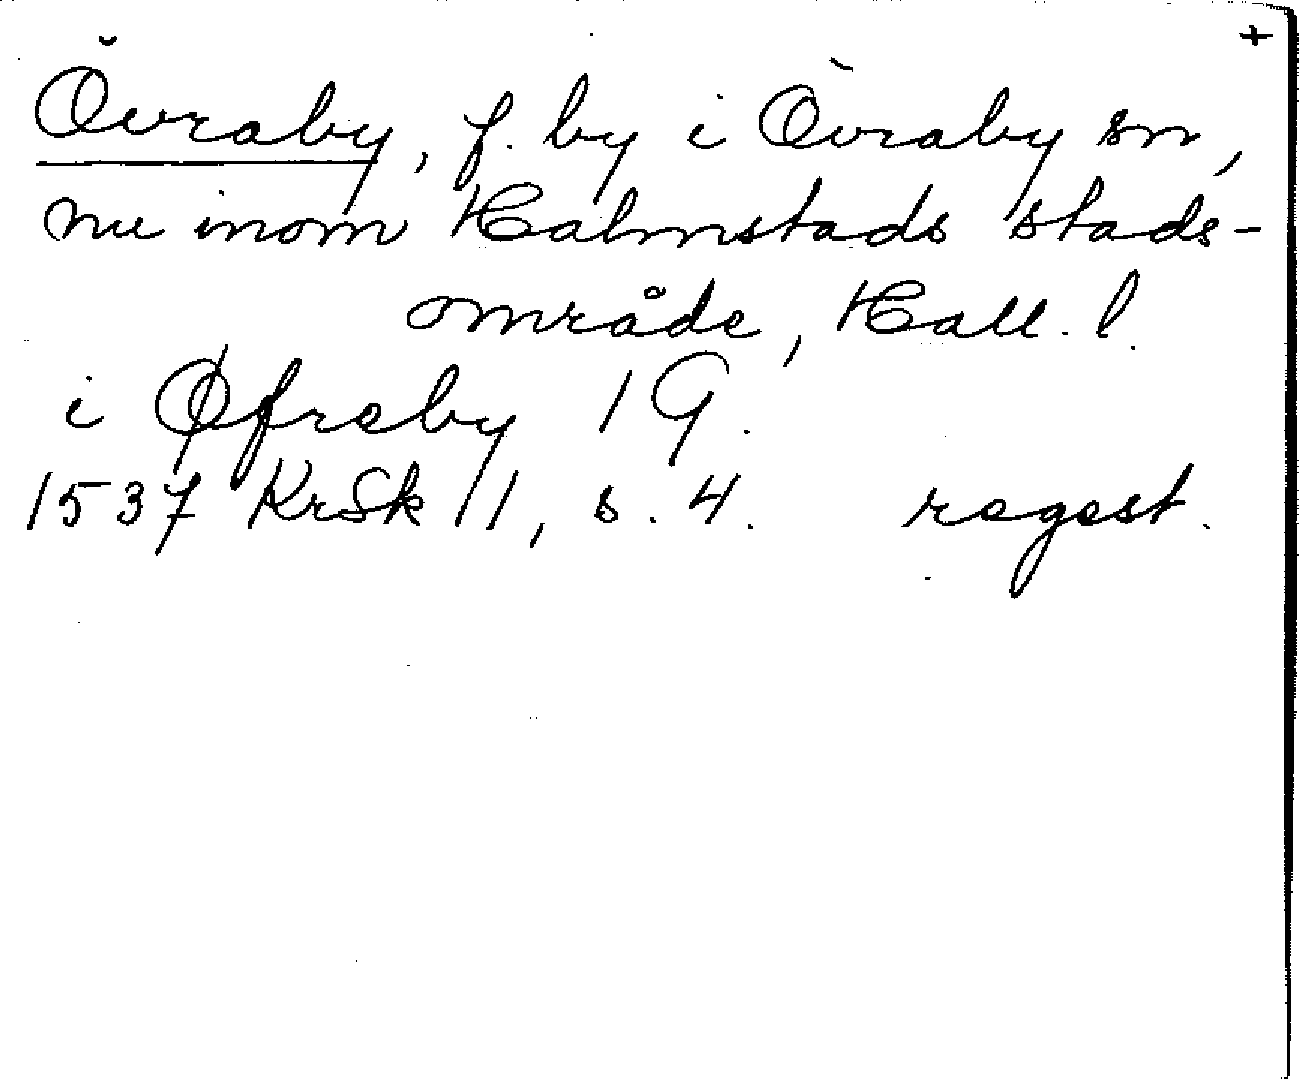 +
Övraby, f. by i Övraby sn,
nu inom Halmstads stads-
område, Hall. l.
i Øfreby 1 G.
1537 KrSk 11, s. 4. regest.